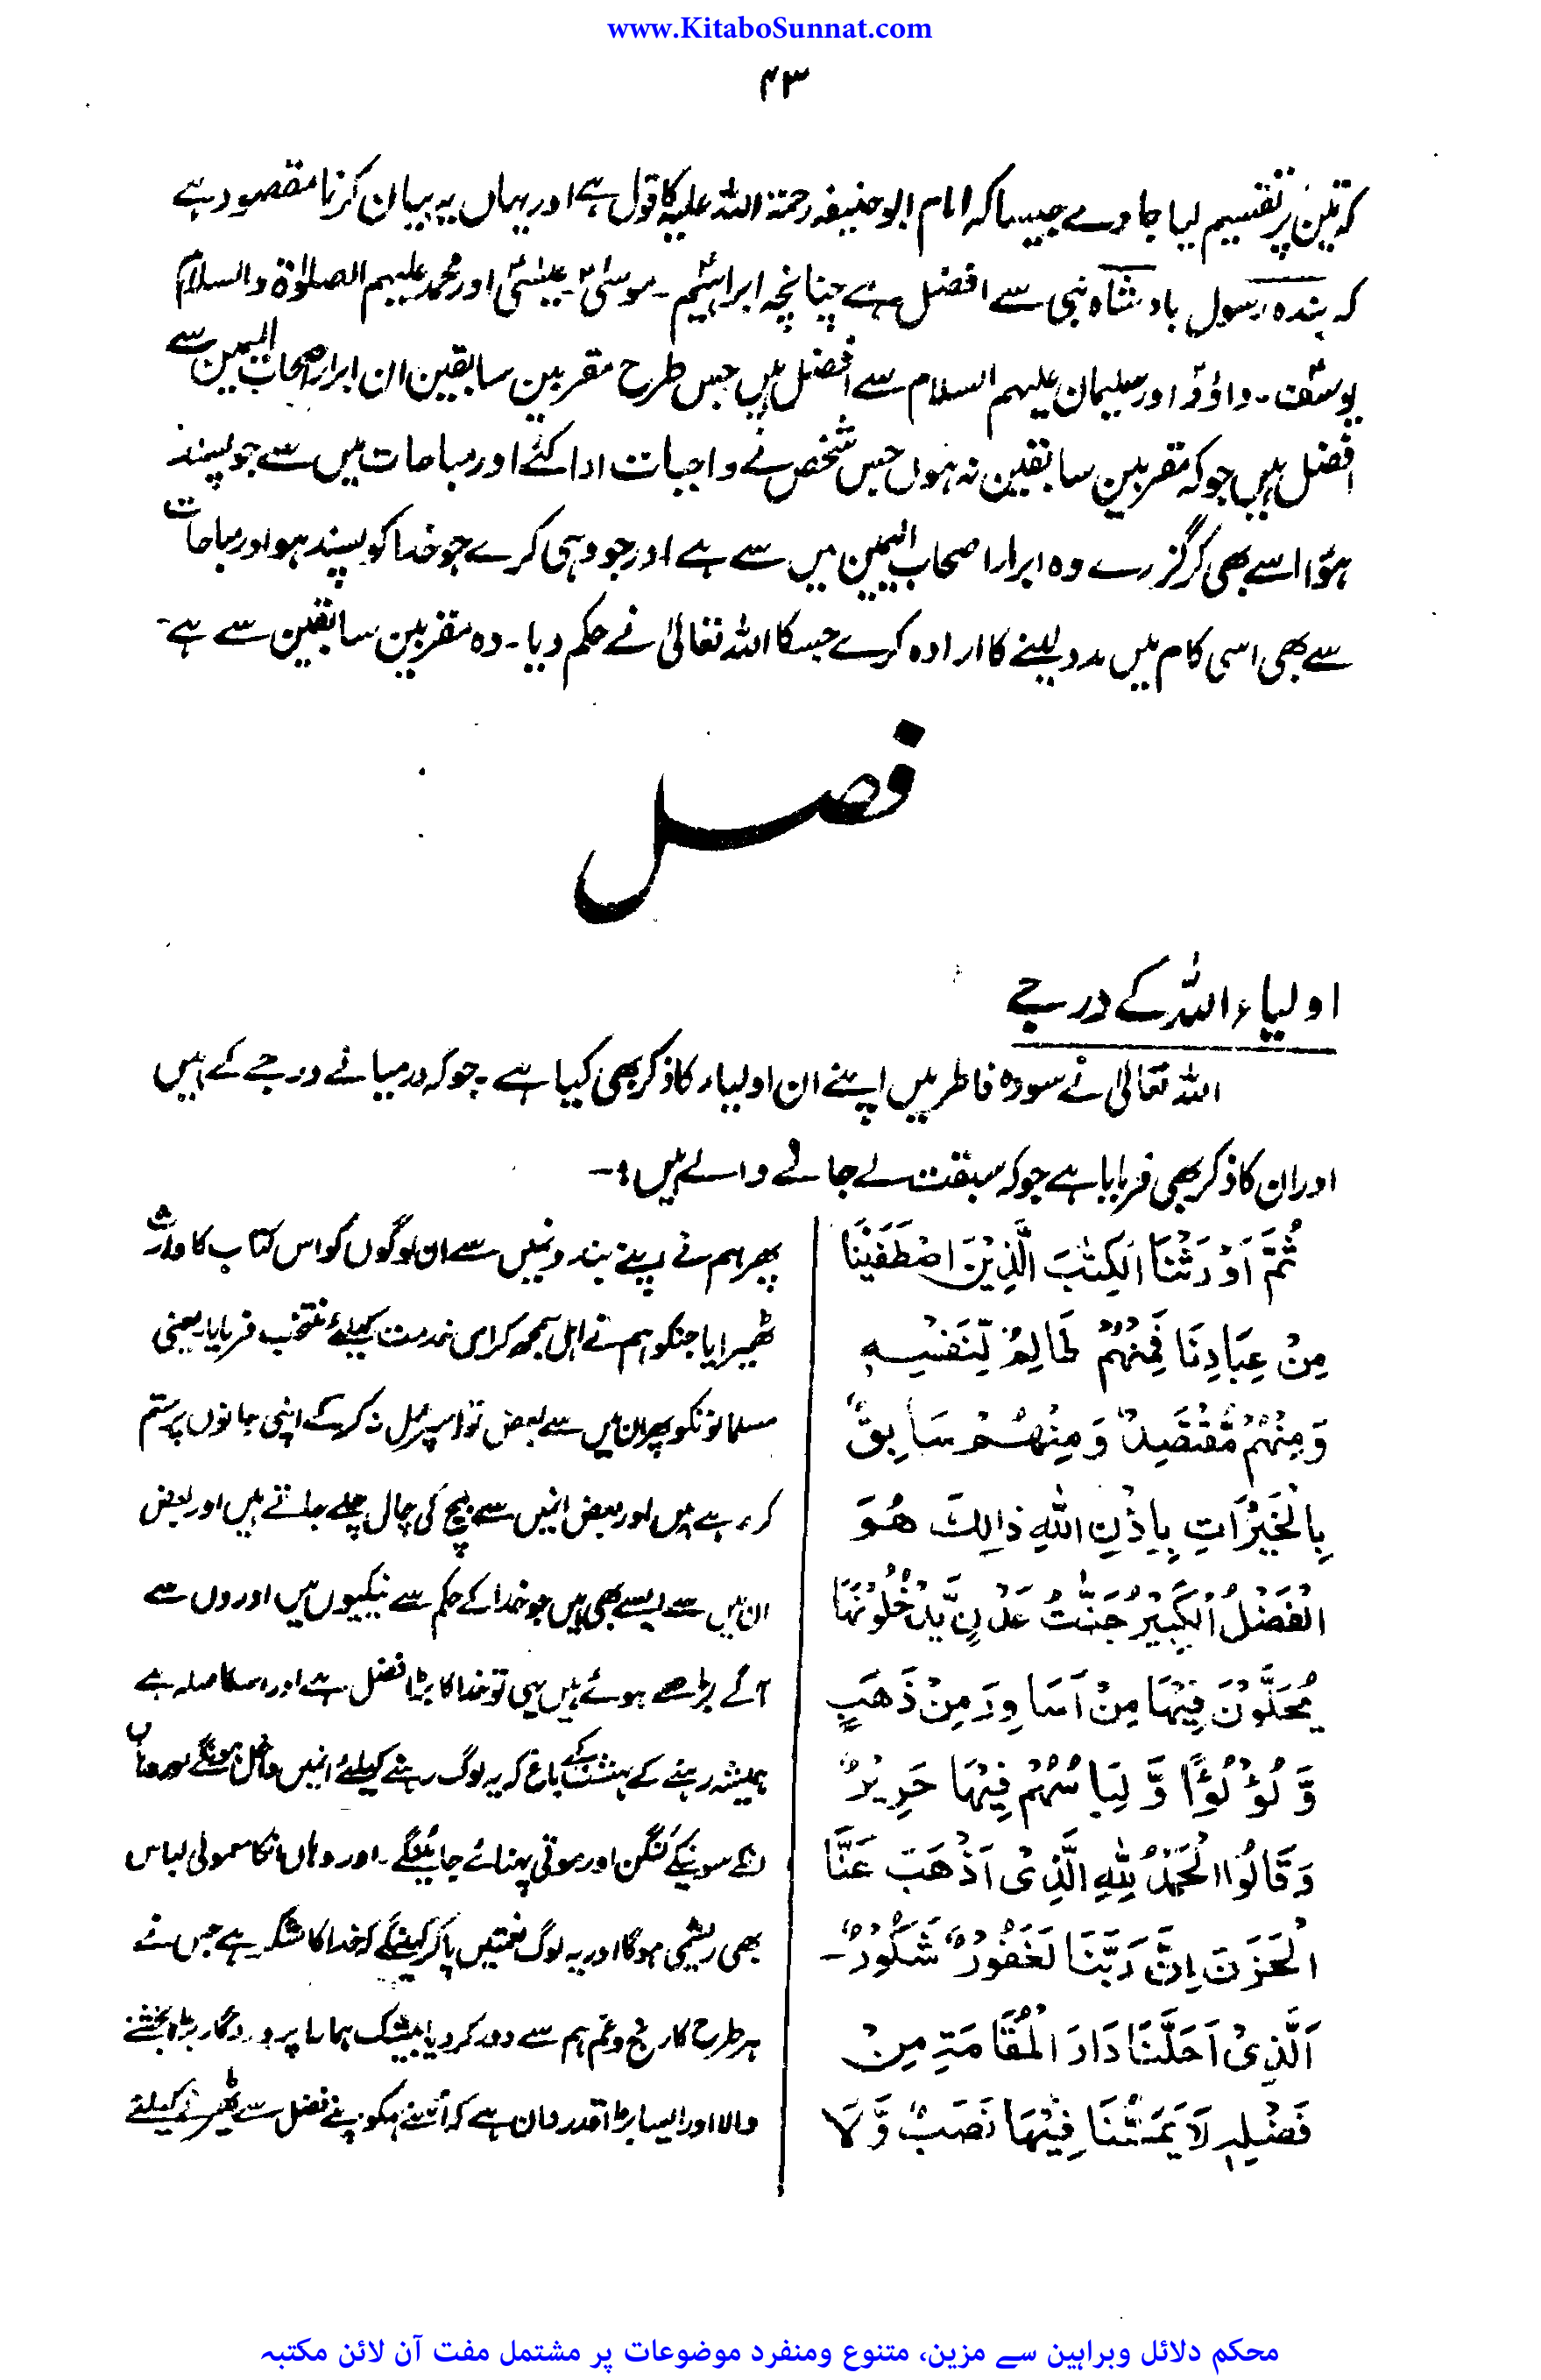 www.KitaboSunnat.com
۴۳
کہ تین پر تقسیم کیا جاوے جیسا کہ امام ابو حنیفہ رحمۃ اللہ علیہ کا قول ہے اور یہاں یہ بیان کرنا مقصود ہے
کہ بندہ رسول بادشاہ نبی سے افضل ہے چنانچہ ابراہیمؑ۔ موسیٰؑ۔ عیسٰیؑ اور محمد علیہم الصلوٰۃ والسلام
یوسفؑ۔ داؤدؑ اور سلیمان علیہم السلام سے افضل ہیں جس طرح مقربین سابقین ان ابرار اصحاب الیمین سے
افضل ہیں جو کہ مقربین سابقین نہ ہوں جس شخص نے واجبات ادا کئے اور مباحات میں سے جو پسند
ہؤا اسے بھی کر گزرے وہ ابرار اصحاب الیمین میں سے ہے اور جو وہی کرے جو خدا کو پسند ہو اور مباحات
سے بھی اسی کام میں مدد لینے کا ارادہ کرے جسکا اللہ تعالیٰ نے حکم دیا۔ وہ مقربین سابقین سے ہے۔
فصل
اولیاء اللہ کے درجے
اللہ تعالیٰ نے سورہ فاطر میں اپنے ان اولیاء کا ذکر بھی کیا ہے۔ جو کہ درمیانے درجے کے ہیں
اور ان کا ذکر بھی فرمایا ہے جو کہ سبقت لے جانے والے ہیں :۔
ثُمَّ اَوْرَثْنَا الْكِتٰبَ الَّذِيْنَ اصْطَفَيْنَا
مِنْ عِبَادِنَا فَمِنْهُمْ ظَالِمٌ لِّنَفْسِهٖ
وَمِنْهُمْ مُّقْتَصِدٌ وَمِنْهُمْ سَابِقٌ
بِالْخَيْرَاتِ بِاِذْنِ اللّٰهِ ذٰالِكَ هُوَ
الْفَضْلُ الْكَبِيْرُ جَنّٰتُ عَدْنٍ يَّدْخُلُوْنَهَا
يُحَلَّوْنَ فِيْهَا مِنْ اَسَاوِرَ مِنْ ذَهَبٍ
وَّ لُؤْلُؤًا وَّ لِبَاسُهُمْ فِيْهَا حَرِيْرٌ
وَقَالُوا الْحَمْدُ لِلّٰهِ الَّذِىْ اَذْهَبَ عَنَّا
الْحَزَنَ اِنَّ رَبَّنَا لَغَفُوْرٌ شَكُوْرٌ۔
اَلَّذِىْ اَحَلَّنَا دَارَ الْمُقَامَةِ مِنْ
فَضْلِهٖ لَا يَمَسُّنَا فِيْهَا نَصَبٌ وَّلَا
پھر ہم نے اپنے بندونمیں سے ان لوگوں کو اس کتاب کا وارث
ٹھیرایا جنکو ہم نے اہل سمجھ کر اس خدمت کیلئے منتخب فرمایا یعنی
مسلمانونکو پھر ان میں سے بعض تو اسپر عمل نہ کر کے اپنی جانوں پر ستم
کر رہے ہیں اور بعض انمیں سے بیچ کی چال چلے جاتے ہیں اور بعض
ان میں سے ایسے بھی ہیں جو خدا کے حکم سے نیکیوں میں اوروں سے
آگے بڑھے ہوئے ہیں یہی تو خدا کا بڑا فضل ہے اور اسکا صلہ ہے
ہمیشہ رہنے کے بہشت کے باغ کہ یہ لوگ رہنے کیلئے انمیں داخل ہونگے اور وہاں
انکے سونیکے کنگن اور موتی پہنائے جائینگے۔ اور وہاں انکا معمولی لباس
بھی ریشمی ہوگا اور یہ لوگ نعمتیں پا کر کہینگے کہ خدا کا شکر ہے جس نے
ہر طرح کا رنج و غم ہم سے دور کر دیا بیشک ہمارا پروردگار بڑا بخشنے
والا اور ایسا بڑا قدردان ہے کہ اُسنے ہمکو اپنے فضل سے ٹھیرنے کیلئے
محکم دلائل وبراہین سے مزین، متنوع ومنفرد موضوعات پر مشتمل مفت آن لائن مکتبہ